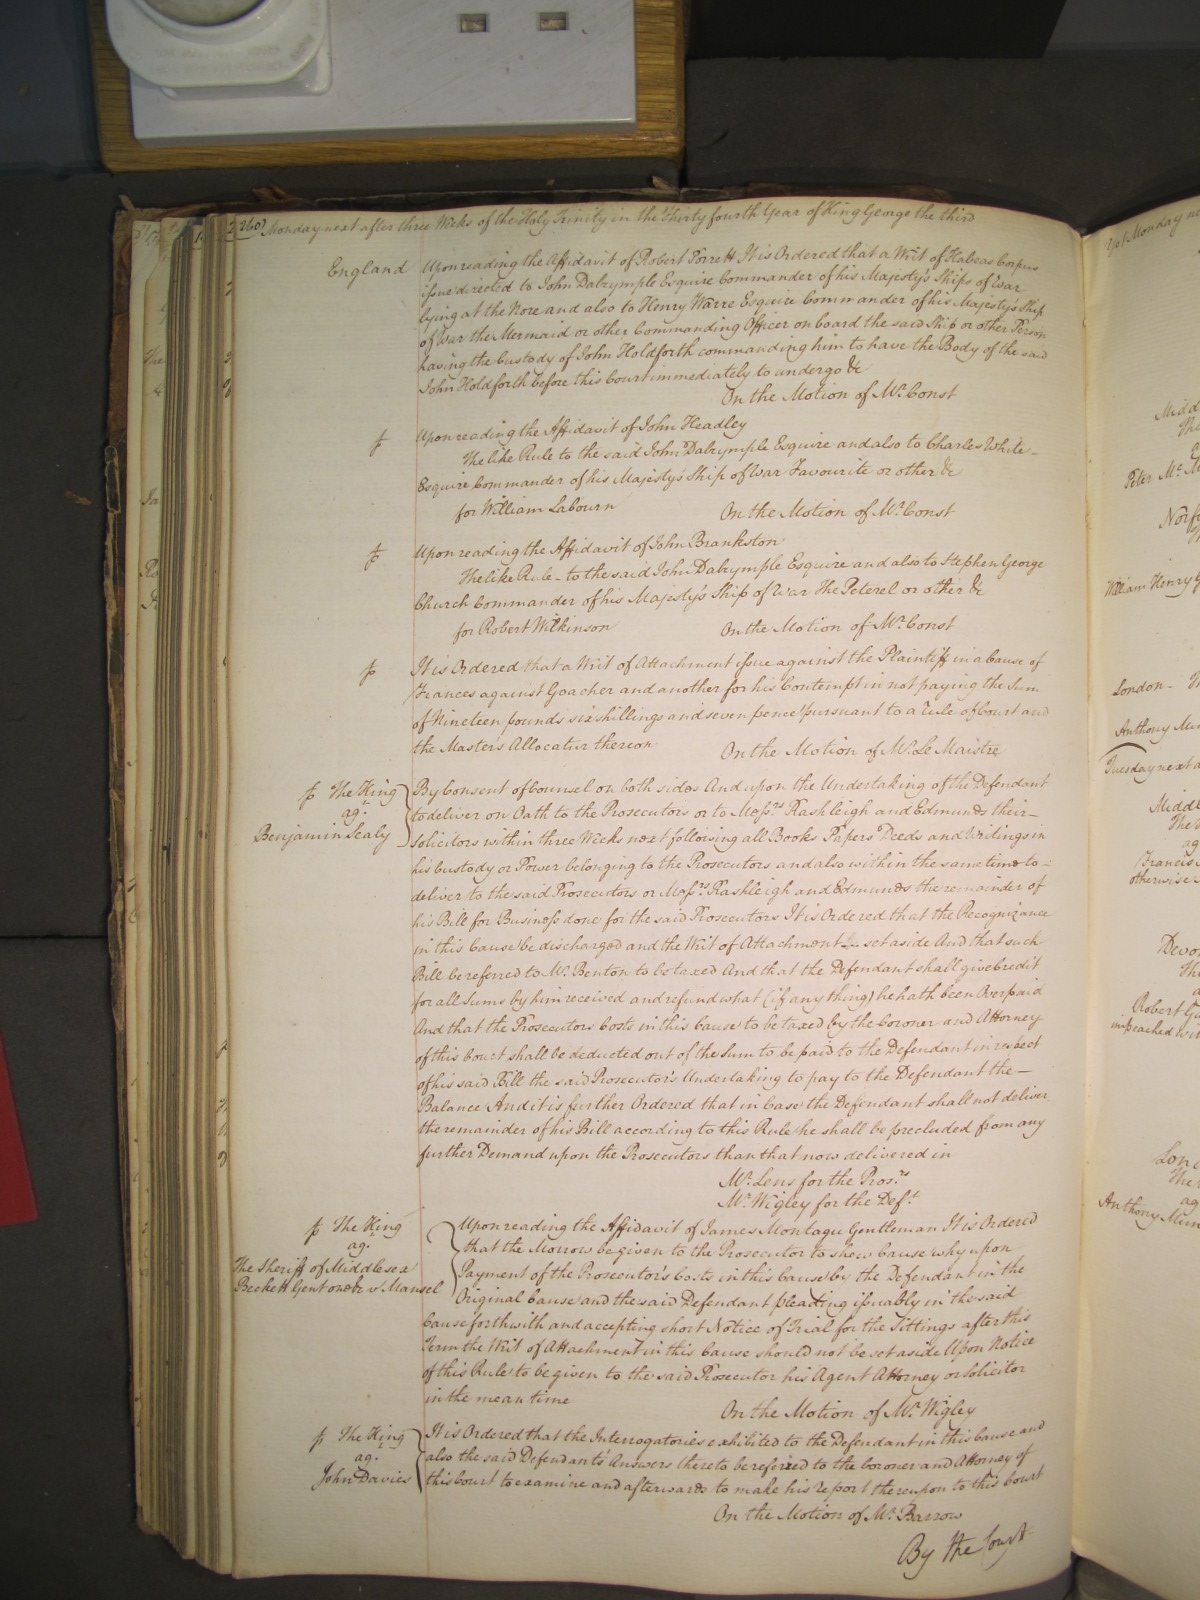 260 Monday next after three Weeks of the Holy Trinity in the Thirty fourth Year of King George the third
England
Upon reading the Affidavit of Robert Porrett It is Ordered that a Writ of Habeas Corpus
issue directed to John Dalrymple Esquire Commander of his Majesty's Ships of War
lying at the Nore and also to Henry Warre Esquire Commander of his Majesty's Ship
of War the Mermaid or other Commanding Officer on board the said Ship or other Person
having the Custody of John Holdforth commanding him to have the Body of the said
John Holdforth before this Court immediately to undergo &c
On the Motion of Mr. Const
Upon reading the Affidavit of John Headley
The like Rule to the said John Dalrymple Esquire and also to Charles White
Esquire Commander of his Majesty's Ship of War Favourite or other &c
for William Labourn On the Motion of Mr. Const
Upon reading the Affidavit of John Brankston
The like Rule to the said John Dalrymple Esquire and also to Stephen George
Church Commander of his Majesty's Ship of War The Peterel or other &c
for Robert Wilkinson On the Motion of Mr. Const
It is Ordered that a Writ of Attachment issue against the Plaintiff in a Cause of
Frances against Goacher and another for his Contempt in not paying the Sum
of Nineteen pounds six shillings and seven pence pursuant to a rule of Court and
the Master's Allocatur thereon On the Motion of Mr. Le Maistre
The King
ag.t
Benjamin Sealy
By Consent of Counsel on both sides And upon the Undertaking of the Defendant
to deliver on Oath to the Prosecutors or to Messrs. Rashleigh and Edmunds their
Solicitors within three Weeks next following all Books Papers Deeds and Writings in
his Custody or Power belonging to the Prosecutors and also within the same time to
deliver to the said Prosecutors or Messrs. Rashleigh and Edmunds the remainder of
his Bill for Business done for the said Prosecutors It is Ordered that the Recognizance
in this Cause be discharged and the Writ of Attachment be set aside And that such
Bill be referred to Mr. Benton to be taxed And that the Defendant shall give Credit
for all Sums by him received and refund what (if any thing) he hath been Overpaid
And that the Prosecutors Costs in this Cause to be taxed by the Coroner and Attorney
of this Court shall be deducted out of the Sum to be paid to the Defendant in respect
of his said Bill the said Prosecutor's Undertaking to pay to the Defendant the
Balance And it is further Ordered that in Case the Defendant shall not deliver
the remainder of his Bill according to this Rule he shall be precluded from any
further Demand upon the Prosecutors than that now delivered in
Mr. Lens for the Pros.rs
Mr. Wigley for the Def.t
The King
ag.t
The Sheriff of Middlesex
Beckett Gent one &c v Mansel
Upon reading the Affidavit of James Montagu Gentleman It is Ordered
that the Morrow be given to the Prosecutor to shew Cause why upon
Payment of the Prosecutor's Costs in this Cause by the Defendant in the
Original Cause and the said Defendant pleading issuably in the said
Cause forthwith and accepting short Notice of Trial for the Sittings after this
Term the Writ of Attachment in this Cause should not be set aside Upon Notice
of this Rule to be given to the said Prosecutor his Agent Attorney or Solicitor
in the mean time
On the Motion of Mr. Wigley
The King
ag.t
John Davies
It is Ordered that the Interrogatories exhibited to the Defendant in this Cause and
also the said Defendant's Answers thereto be referred to the Coroner and Attorney of
this Court to examine and afterwards to make his report thereupon to this Court
On the Motion of Mr. Barrow
By the Court